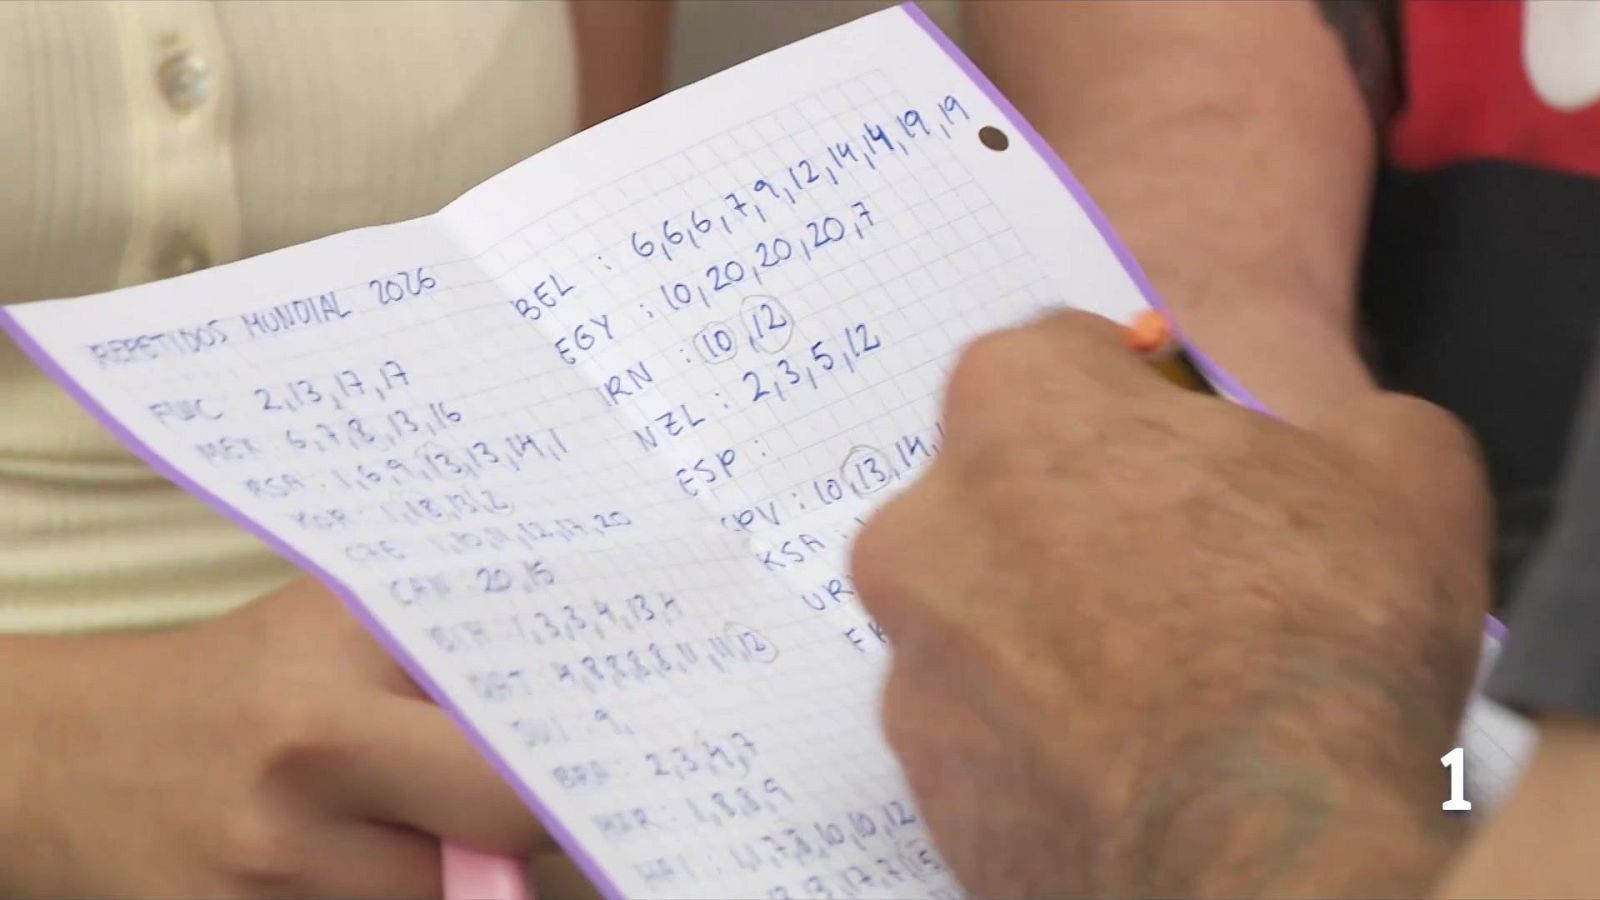 REPETIDOS MUNDIAL 2026
FWC 2,13,17,17
MEX 5,7,8,13,16
RSA : 1,6,9,13,13,14,1
KOR
CZE 12,17,20
CAN 20,15
BIH 1,3,3,4,13,4
QAT 4,8,8,8,8,11,11,12
SUI : 9,
BRA : 2,3,4,7
MAR : 1,8,8,9
HAI : 1,1,7,8,10,10,12
BEL : 6,6,6,7,9,12,14,14,19,19
EGY : 10,20,20,20,7
IRN : 10,12
NZL : 2,3,5,12
ESP :
CPV : 10,13,14,
KSA :
UR
1